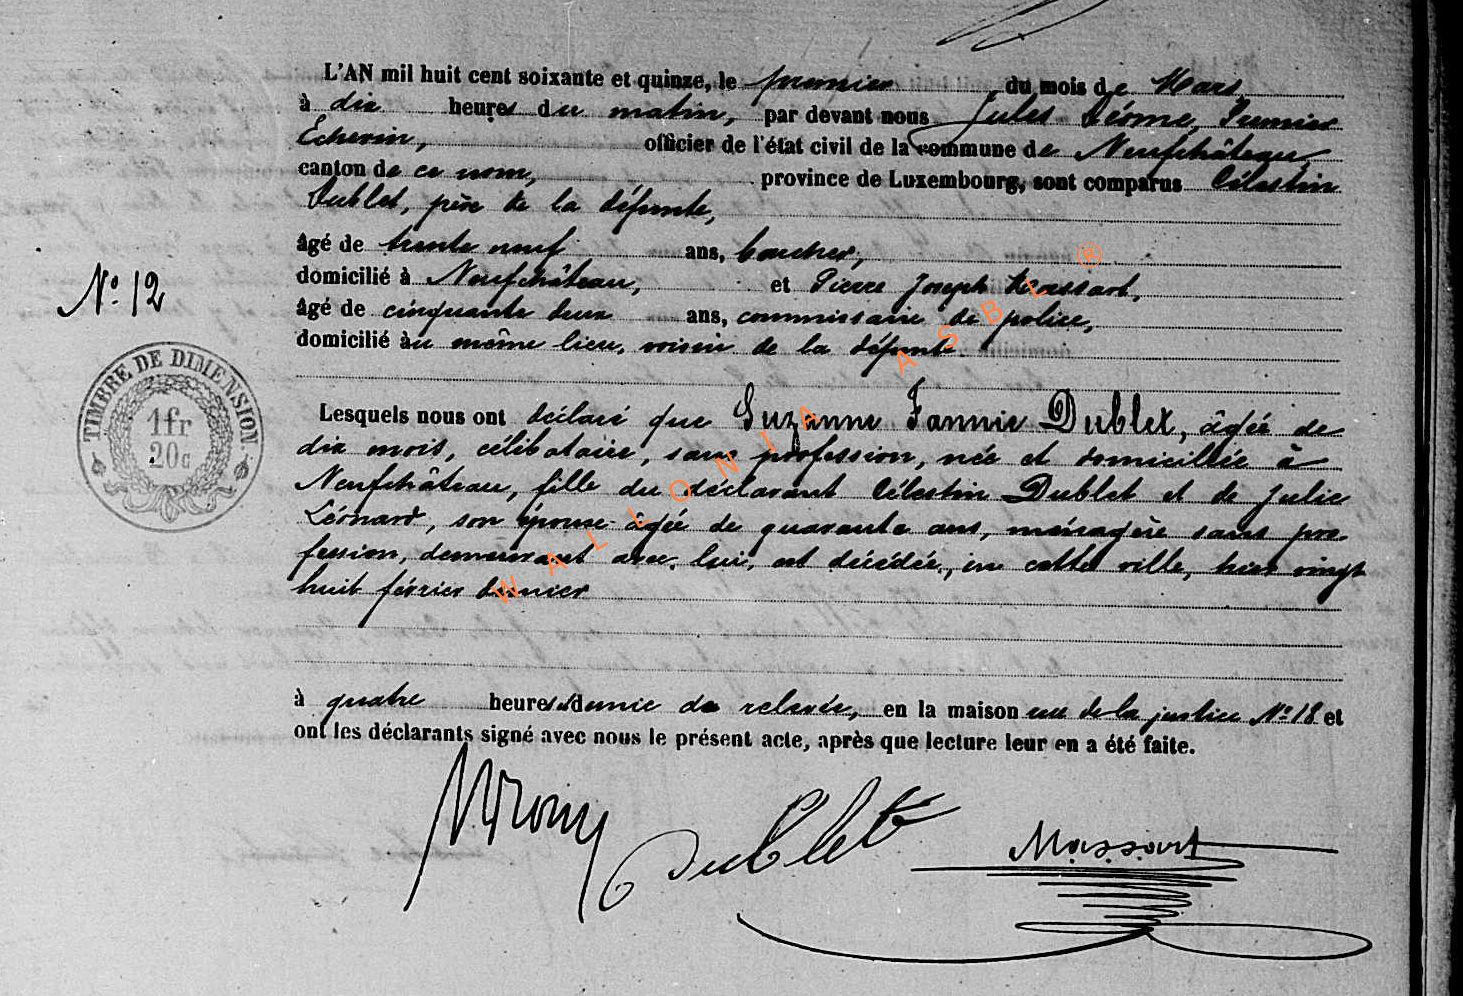 L'AN mil huit cent soixante et quinze, le premier du mois de Mars
à dix heures du matin, par devant nous Jules Dérome, Premier
Echevin, officier de l'état civil de la commune de Neufchâteau,
canton de ce nom, province de Luxembourg, sont comparus Célestin
Dublet, père de la défunte,
âgé de trente neuf ans, boucher,
domicilié à Neufchâteau, et Pierre Joseph Massart,
N° 12
âgé de cinquante deux ans, commissaire de police,
domicilié au même lieu, voisin de la défunte.
TIMBRE DE DIMENSION
1fr
20c
Lesquels nous ont déclaré que Suzanne Fannie Dublet, âgée de
dix mois, célibataire, sans profession, née et domiciliée à
Neufchâteau, fille du déclarant Célestin Dublet et de Julie
Léonard, son épouse âgée de quarante ans, ménagère sans pro
fession, demeurant avec lui, est décédée, en cette ville, hier vingt
huit février dernier
à quatre heures et demie de relevée, en la maison rue de la justice N° 18 et
ont les déclarants signé avec nous le présent acte, après que lecture leur en a été faite.
Dublet Massart
WALLONIA ASBL ®